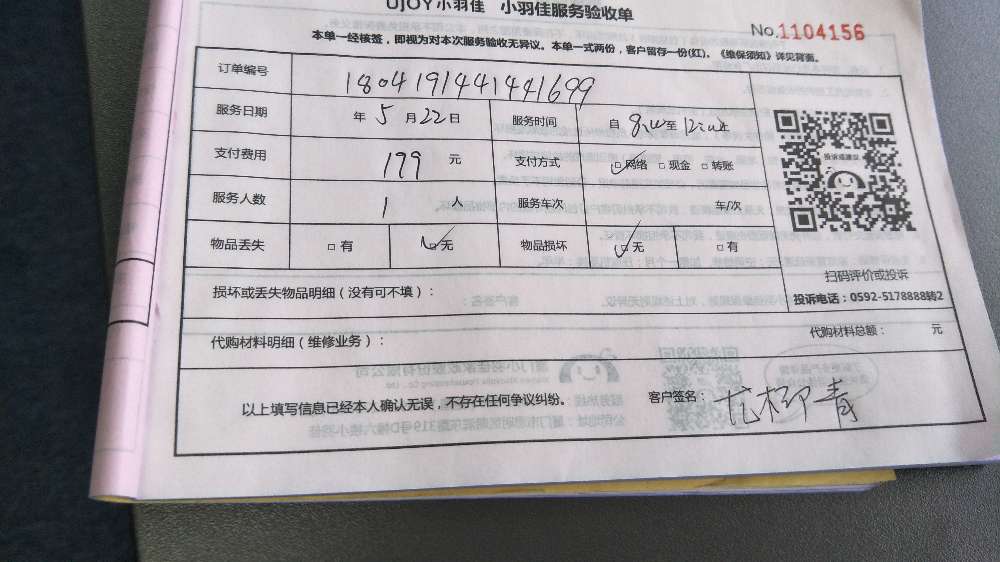 UJOY小羽佳 小羽佳服务验收单
No.1104156
本单一经核签，即视为对本次服务验收无异议。本单一式两份，客户留存一份(红)。《维保须知》详见背面。
订单编号 1804191441441699
服务日期 年 5 月 22 日 服务时间 自 8:00 至 12:00 止
支付费用 199 元 支付方式 ☑网络 □现金 □转账
服务人数 1 人 服务车次 车/次
物品丢失 □有 ☑无 物品损坏 ☑无 □有
投诉或建议
扫码评价或投诉
投诉电话：0592-5178888转2
损坏或丢失物品明细（没有可不填）：
代购材料明细（维修业务）： 代购材料总额： 元
以上填写信息已经本人确认无误，不存在任何争议纠纷。 客户签名：